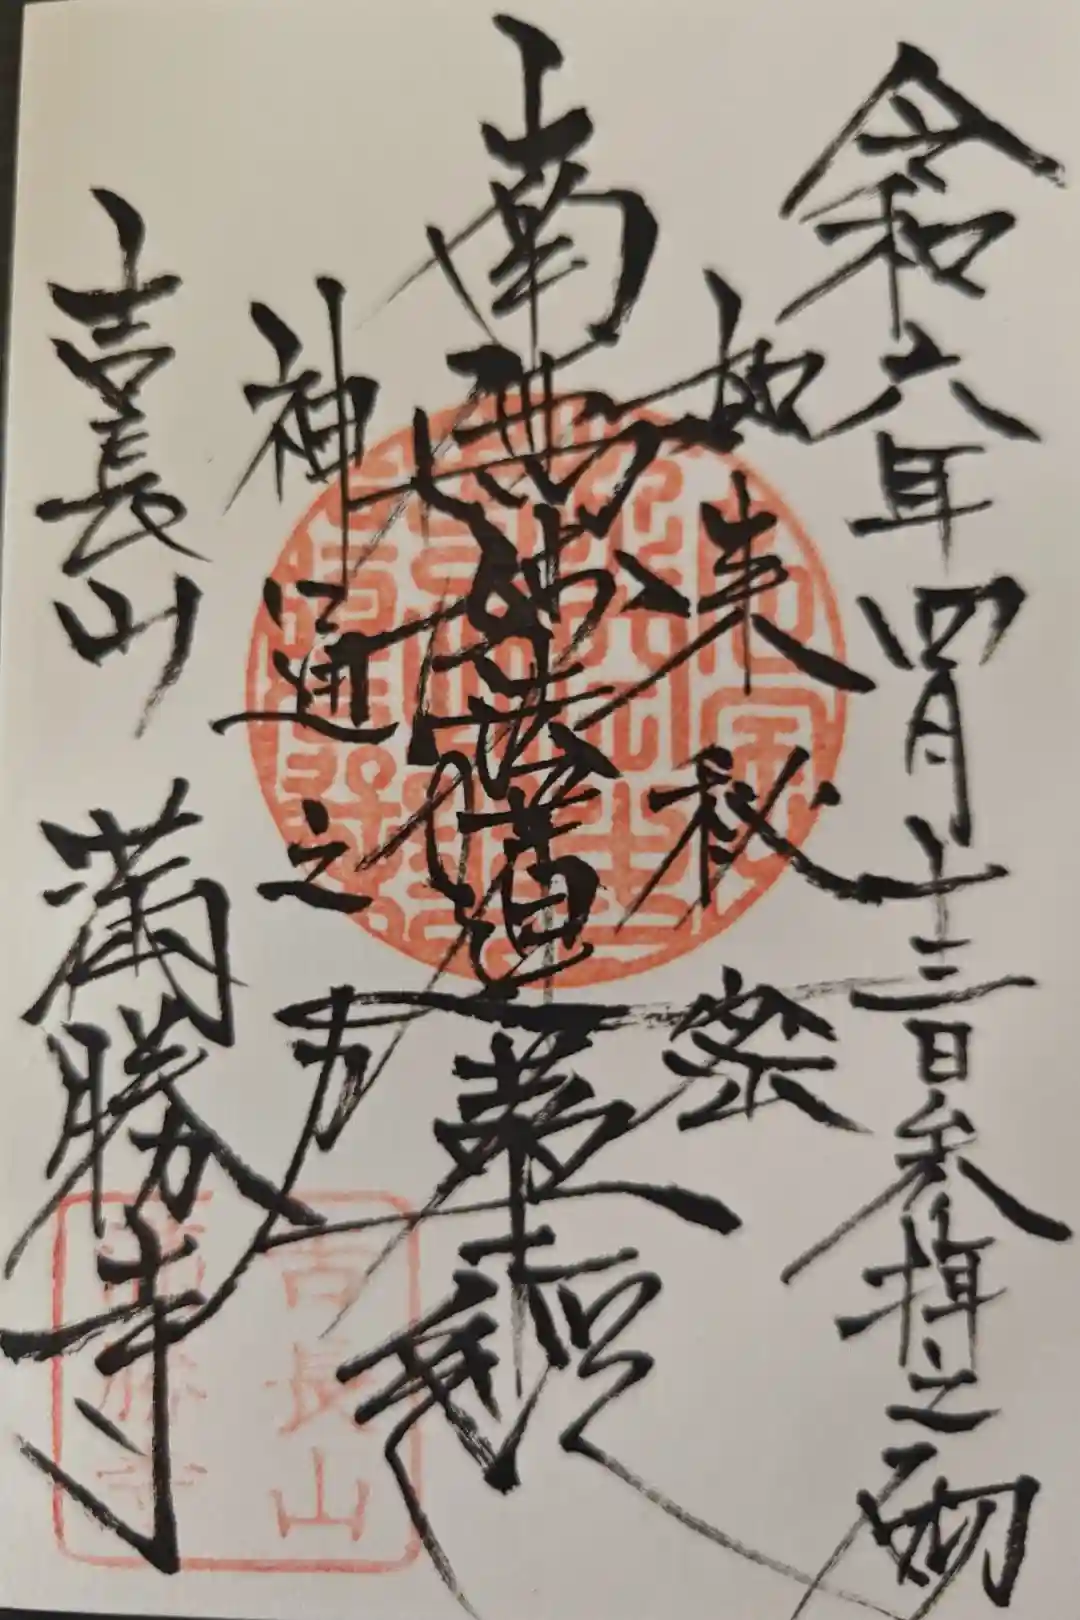 令和六年四月十三日参拝之砌
如来秘密
南無妙法蓮華経
神通之力
吉長山 満勝寺
吉長山
満勝寺